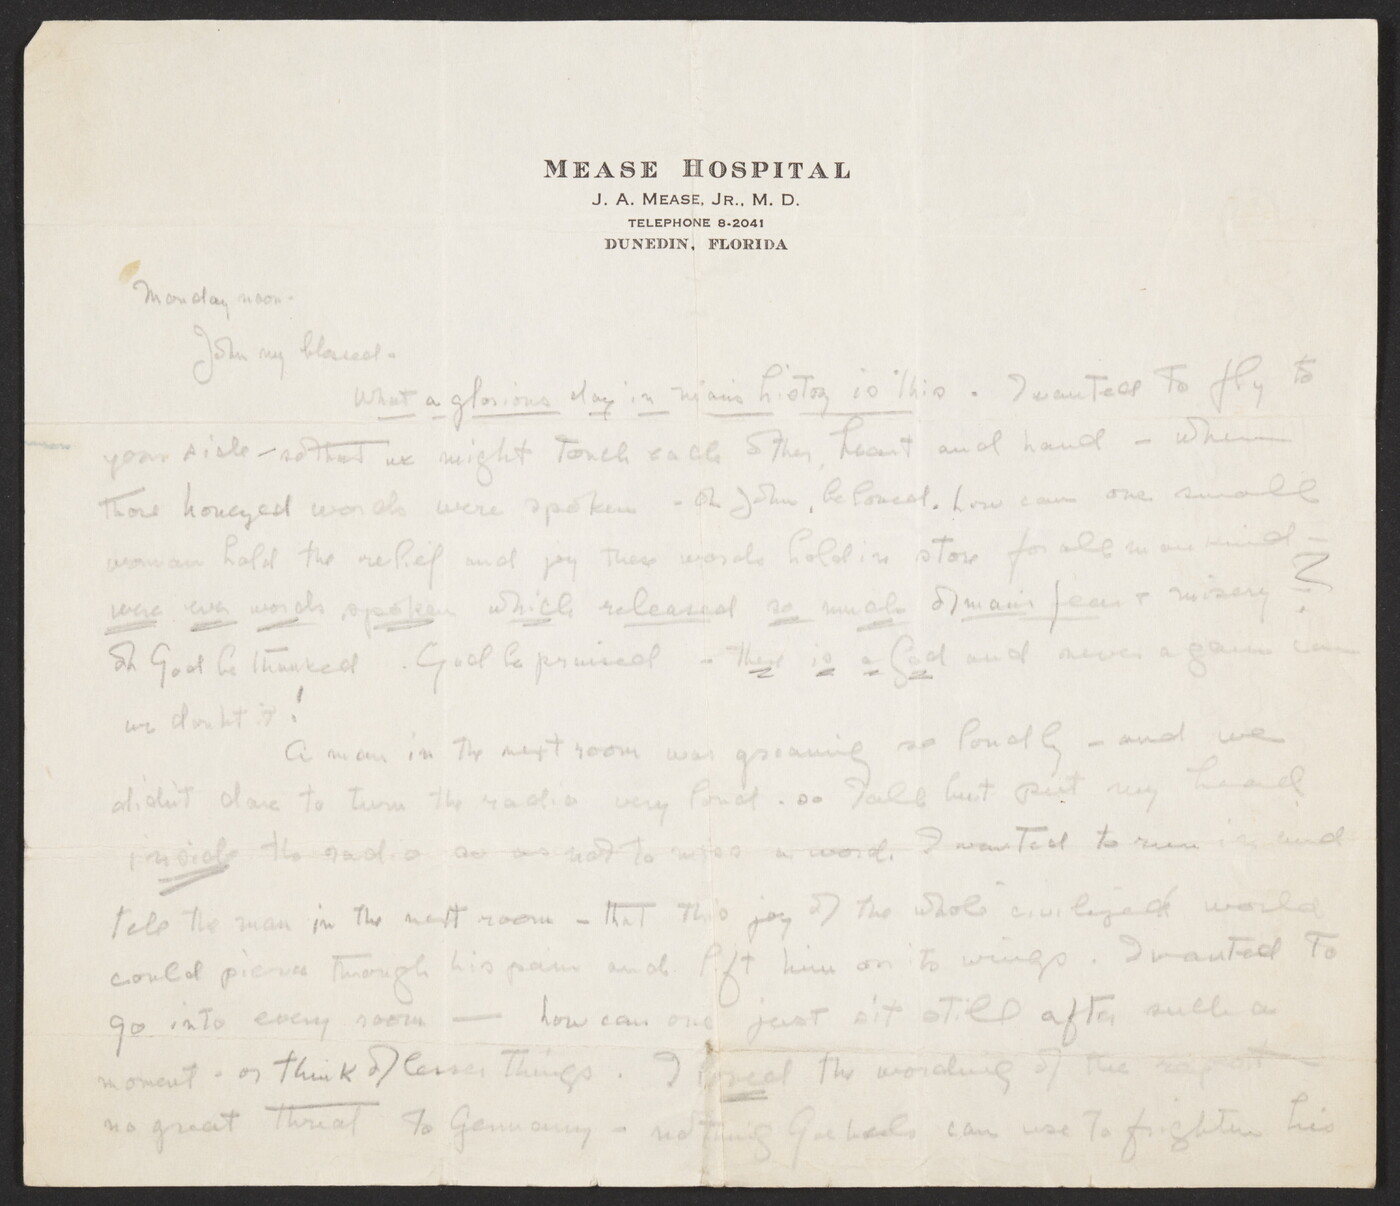 MEASE HOSPITAL
J. A. MEASE, JR., M. D.
TELEPHONE 8-2041
DUNEDIN, FLORIDA
Monday noon.
John my beloved.
What a glorious day in man's history is this. I wanted to fly to
your side - so that we might touch each other, heart and hand - when
those honeyed words were spoken - oh John, beloved. how can one small
woman hold the relief and joy these words hold in store for all mankind -
were ever words spoken which released so much of man's fear + misery?
Oh God be thanked. God be praised - there is a God and never again can
we doubt it!
A man in the next room was groaning so loudly - and we
didn't dare to turn the radio very loud. so I all but put my head
inside the radio so as not to miss a word. I wanted to run in and
tell the man in the next room - that this joy of the whole civilized world
could pierce through his pain and lift him on its wings. I wanted to
go into every room — how can one just sit still after such a
moment - or think of lesser things. I loved the wording of the report -
no great threat to Germany - nothing Goebbels can use to frighten his